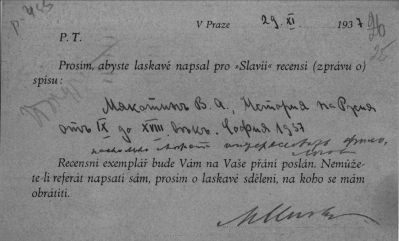 V Praze 29. XI. 1937
P. T.
Prosím, abyste laskavě napsal pro »Slavii« recensi (zprávu o)
spisu:
Мякотинъ В. А., История на Русия
отъ IX до XVIII вѣкъ. София 1937
Recensní exemplář bude Vám na Vaše přání poslán. Nemůže-
te-li referát napsati sám, prosím o laskavé sdělení, na koho se mám
obrátiti.